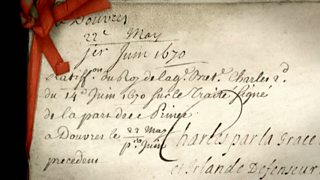 a Douvres
22e May
1er Juin 1670
Ratif.on du Roy de la g. Bret.e Charles 2d
du 14e Juin 1670 sur le Traité signé
de la part de ce Prince
a Douvres le 22 May
pr. Juin
precedent
Charles par la Grace
et Irlande Defenseur